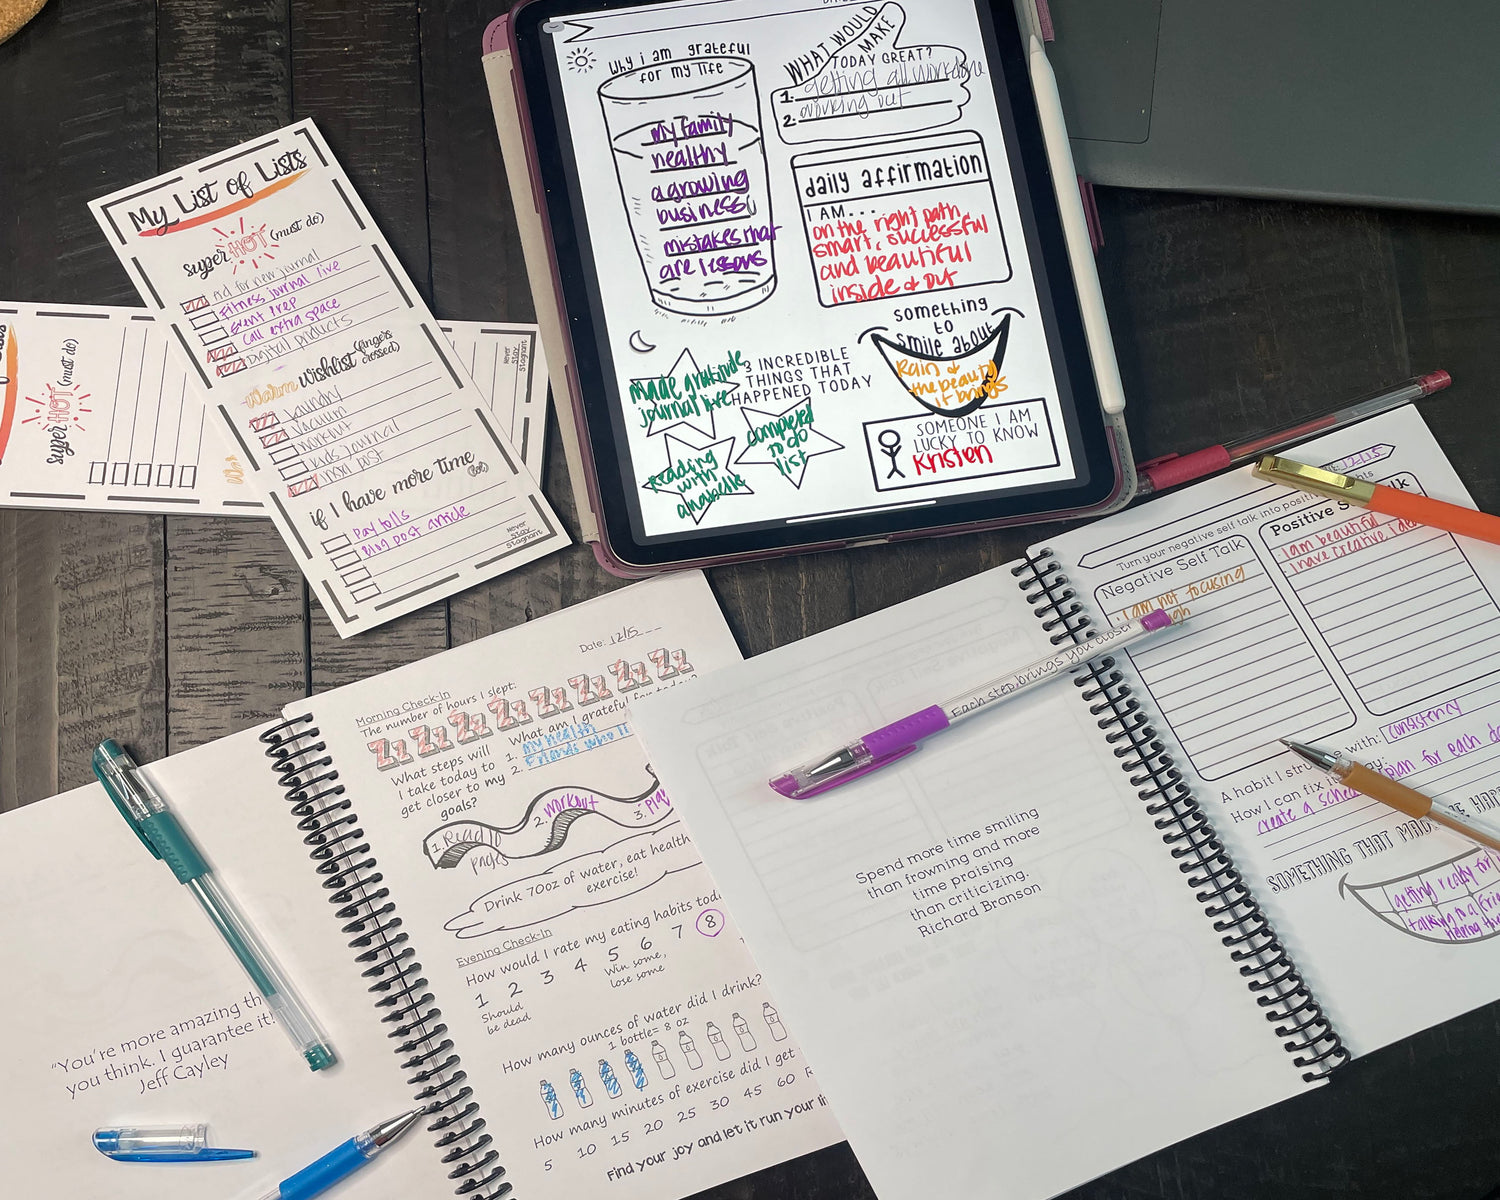 My List of Lists
super HOT (must do)
Ad for new journal
Fitness journal live
Event prep
Call extra space
Digital products
Warm wishlist (fingers crossed)
Laundry
Vacuum
workout
kids journal
inari post
if I have more time (lol)
Pay tolls
Blog post article
Never
Stay
Stagnant
super HOT (must do)
Never
Stay
Stagnant
why i am grateful
for my life
my family
healthy
a growing
business
mistakes that
are lessons
WHAT WOULD
MAKE
TODAY GREAT?
1. getting all work done
2. working out
daily affirmation
I AM...
on the right path,
smart, successful
and beautiful
inside & out
something
to
smile about
Rain &
the beauty
it brings
3 INCREDIBLE
THINGS THAT
HAPPENED TODAY
Made gratitude
journal live
completed
to do
list
Reading
with
anabelle
SOMEONE I AM
LUCKY TO KNOW
Kristen
"You're more amazing th
you think. I guarantee it!
Jeff Cayley
Date: 12/15
Morning Check-In
The number of hours I slept:
Zz Zz Zz Zz Zz Zz Zz Zz
What steps will
I take today to
get closer to my
goals?
What am I grateful for today?
1. my health
2. Friends who
1. Read 10
pages
2. workout
3. play
Drink 70oz of water, eat health
exercise!
Evening Check-In
How would I rate my eating habits toda
1 2 3 4 5 6 7 8
Should
be dead
Win some,
lose some
How many ounces of water did I drink?
1 bottle= 8 oz
How many minutes of exercise did I get
5 10 15 20 25 30 45 60
Find your joy and let it run your li
Spend more time smiling
than frowning and more
time praising
than criticizing.
Richard Branson
Each step brings you closer
12/15
Turn your negative self talk into positive this
Negative Self Talk
I am not focusing
Positive S lk
I am beautiful
I have creative idea
A habit I stru e with: consistency
How I can fix i ay:
create a sche plan for each da
SOMETHING THAT MADE ME HAP
getting ready for
talking to a frie
helping